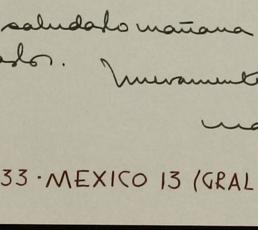 saludarlo mañana
Nuevamente
33 · MEXICO 13 (GRAL